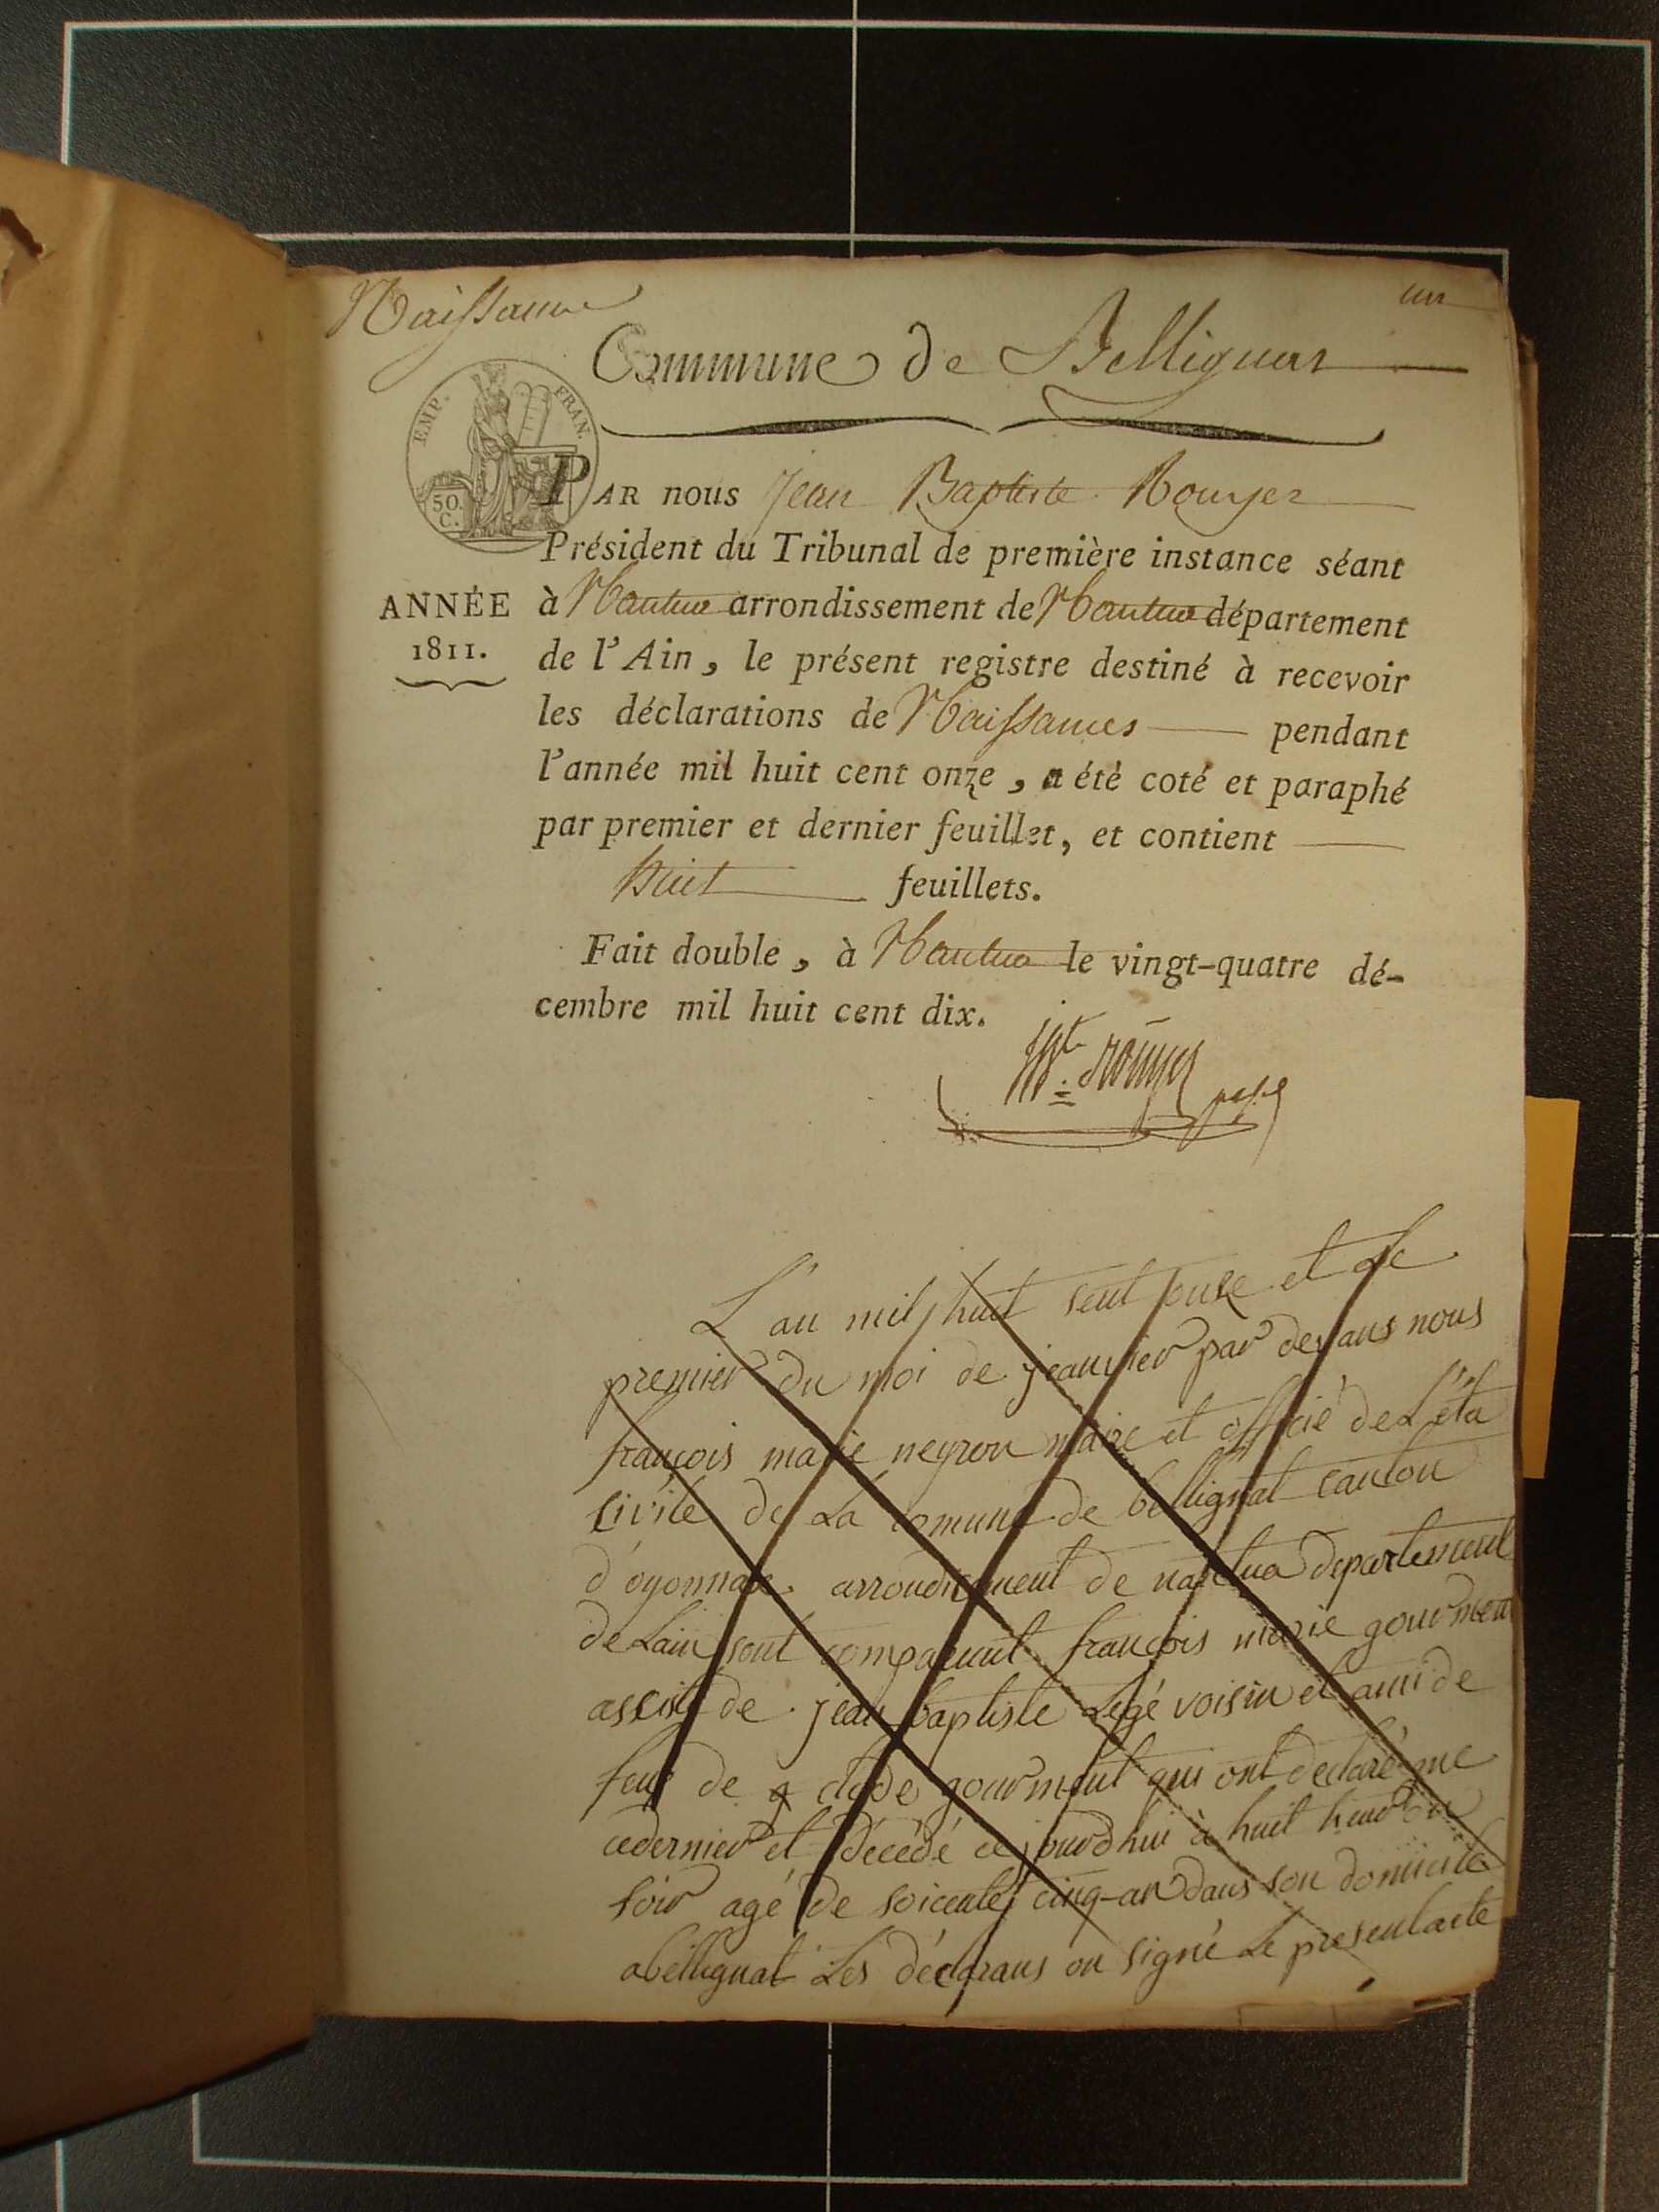 Naissance
un
Commune de Bellignat
EMP. FRAN.
50. C.
PAR nous Jean Baptiste Rouyer
Président du Tribunal de première instance séant
ANNÉE
1811.
à Nantua arrondissement de Nantua département
de l'Ain, le présent registre destiné à recevoir
les déclarations de Naissances pendant
l'année mil huit cent onze, a été coté et paraphé
par premier et dernier feuillet, et contient
huit feuillets.
Fait double, à Nantua le vingt-quatre dé-
cembre mil huit cent dix.
rouyer
L'an mil huit sent onze et Le
premier du moi de jeanvier par devans nous
françois marie neyron maire et officié de L'éta
Civile de La comune de bellignat canton
d'oyonnaxe arrondicement de nantua departement
de Lain sont comparunt françois marie gourment
assisté de jean baptiste Legé voisin et ami de
feu de clode gourment qui ont declaré que
cedernier et décédé ce jourd'hui à huit heur du
soir agé de soicente cinq an dans son domicile
abellignat Les déclarans on signé Le present acte